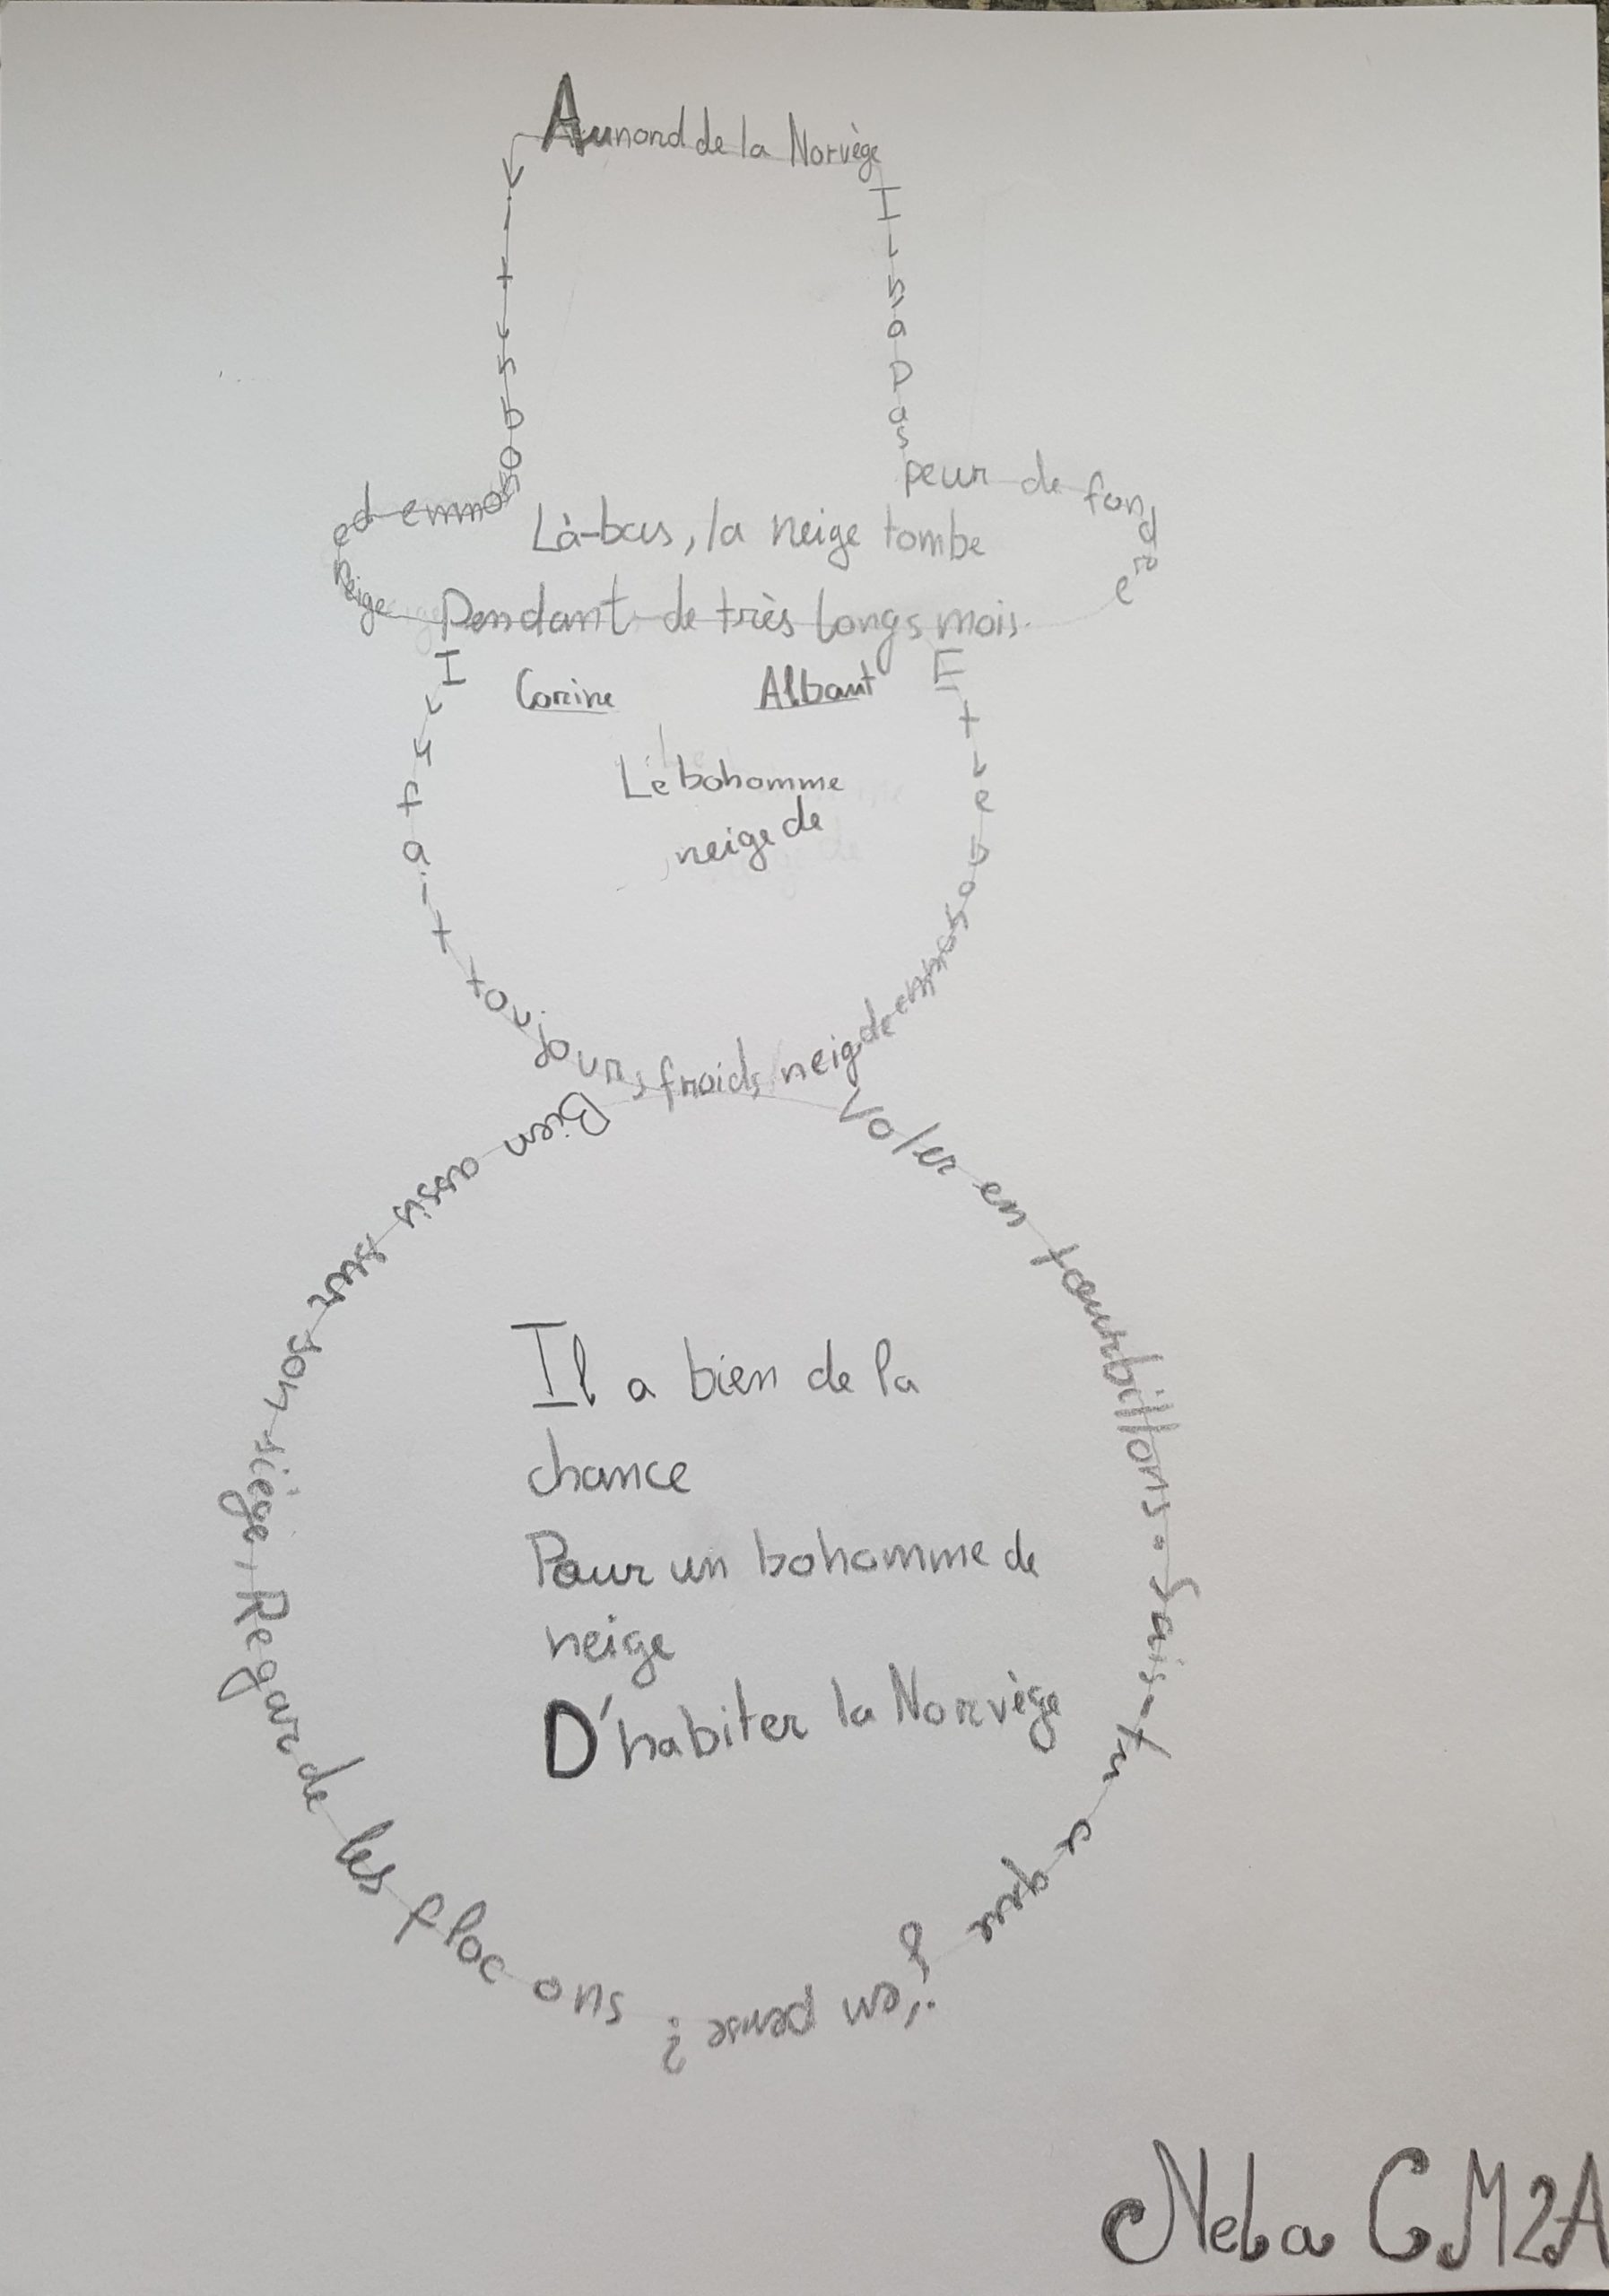 Au nord de la Norvège
vit un bonhomme de
neige
Il n a pas
peur de fondre
Là-bas, la neige tombe
Pendant de très longs mois.
Corine Albaut
Le bohomme
neige de
Il y fait toujours froid,
Et le bonhomme de neig
Bien assis sur son siège, Regarde les flocons
Voler en tourbillons. Sais-tu ce que
j'en pense ?
Il a bien de la
chance
Pour un bohomme de
neige
D'habiter la Norvège
Neba CM2A